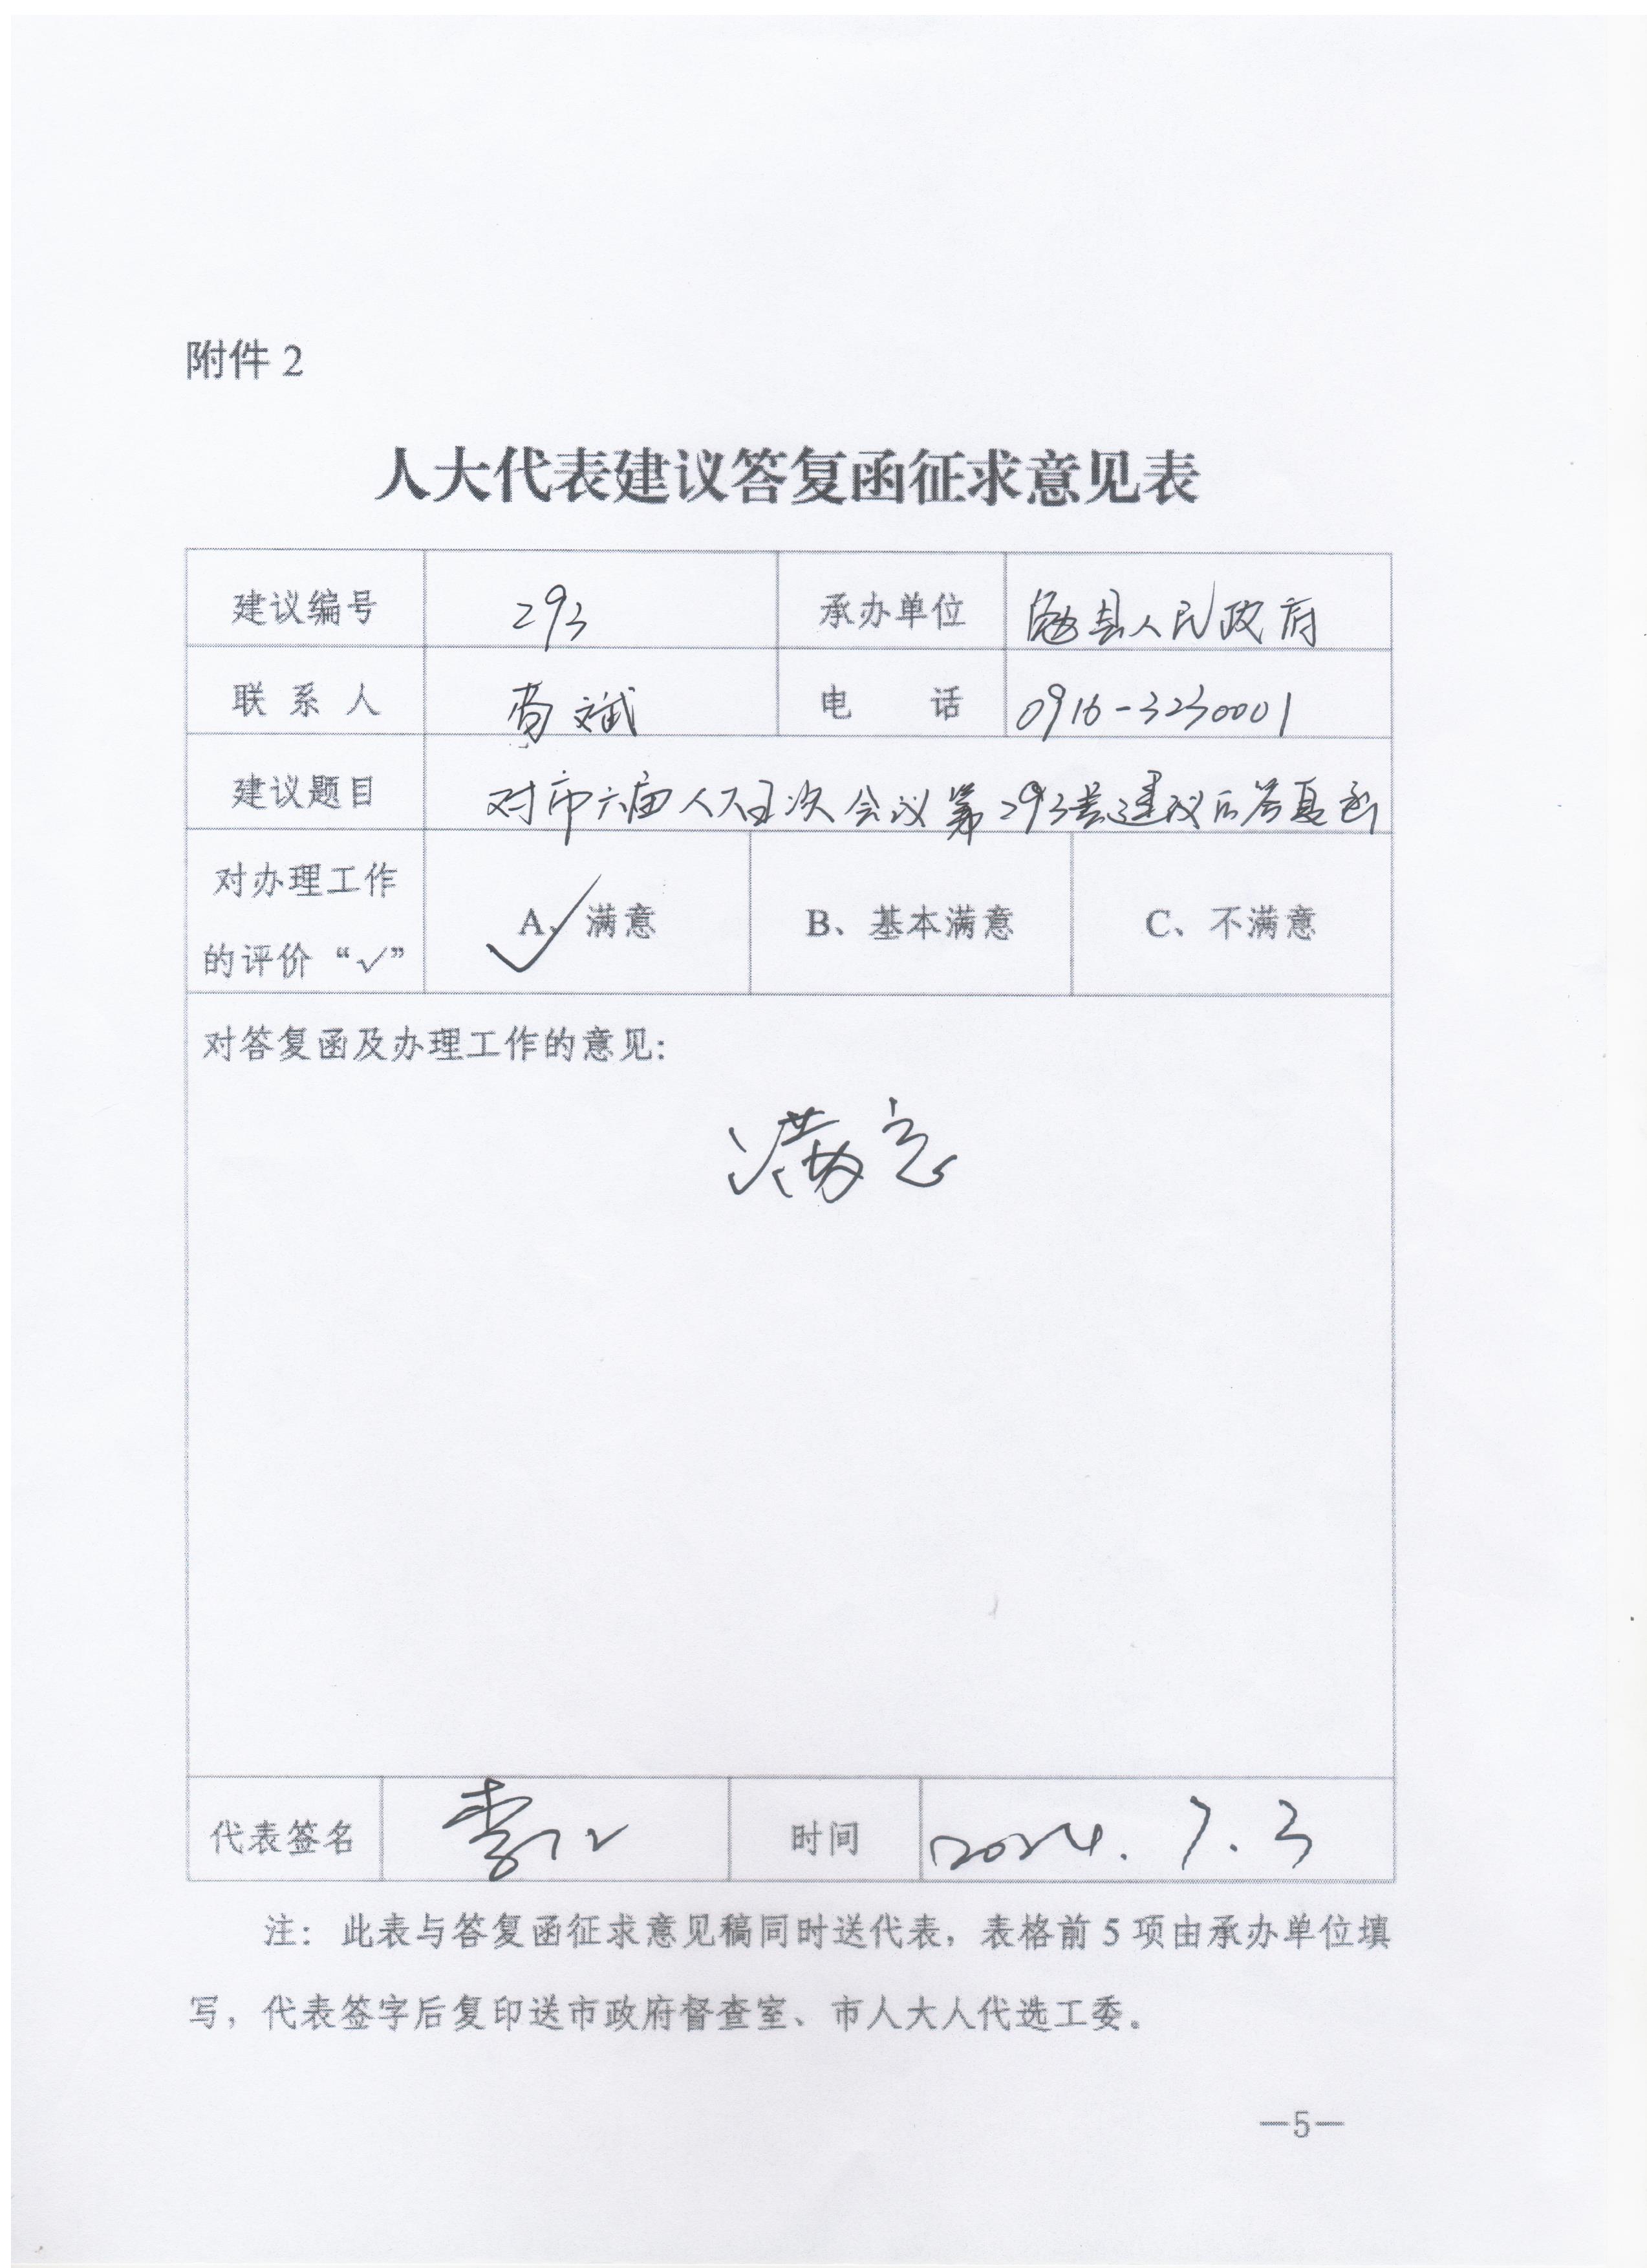 附件 2
人大代表建议答复函征求意见表
建议编号 293 承办单位 勉县人民政府
联系人 文斌 电话 0916-3230001
建议题目 对市六届人大五次会议第293号建议的答复函
对办理工作
的评价“✓” A、满意 B、基本满意 C、不满意
✓
对答复函及办理工作的意见：
满意
代表签名 李 时间 2024.7.3
注：此表与答复函征求意见稿同时送代表，表格前 5 项由承办单位填
写，代表签字后复印送市政府督查室、市人大人代选工委。
—5—